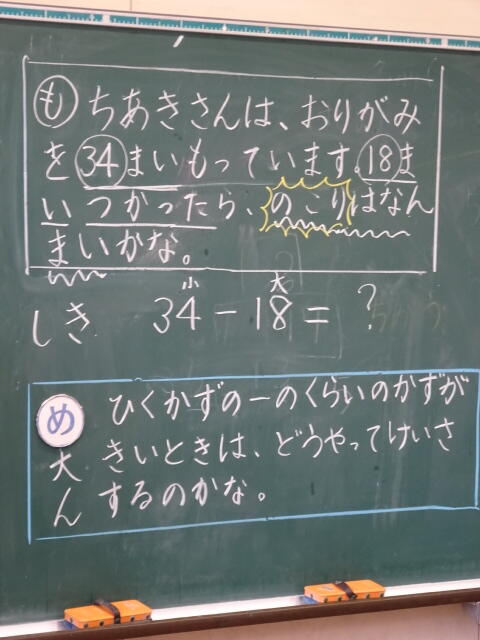 も ちあきさんは、おりがみ
を34まいもっています。18ま
いつかったら、のこりはなん
まいかな。
小 大
しき 34-18=?
め ひくかずの一のくらいのかずが
大きいときは、どうやってけいさ
んするのかな。